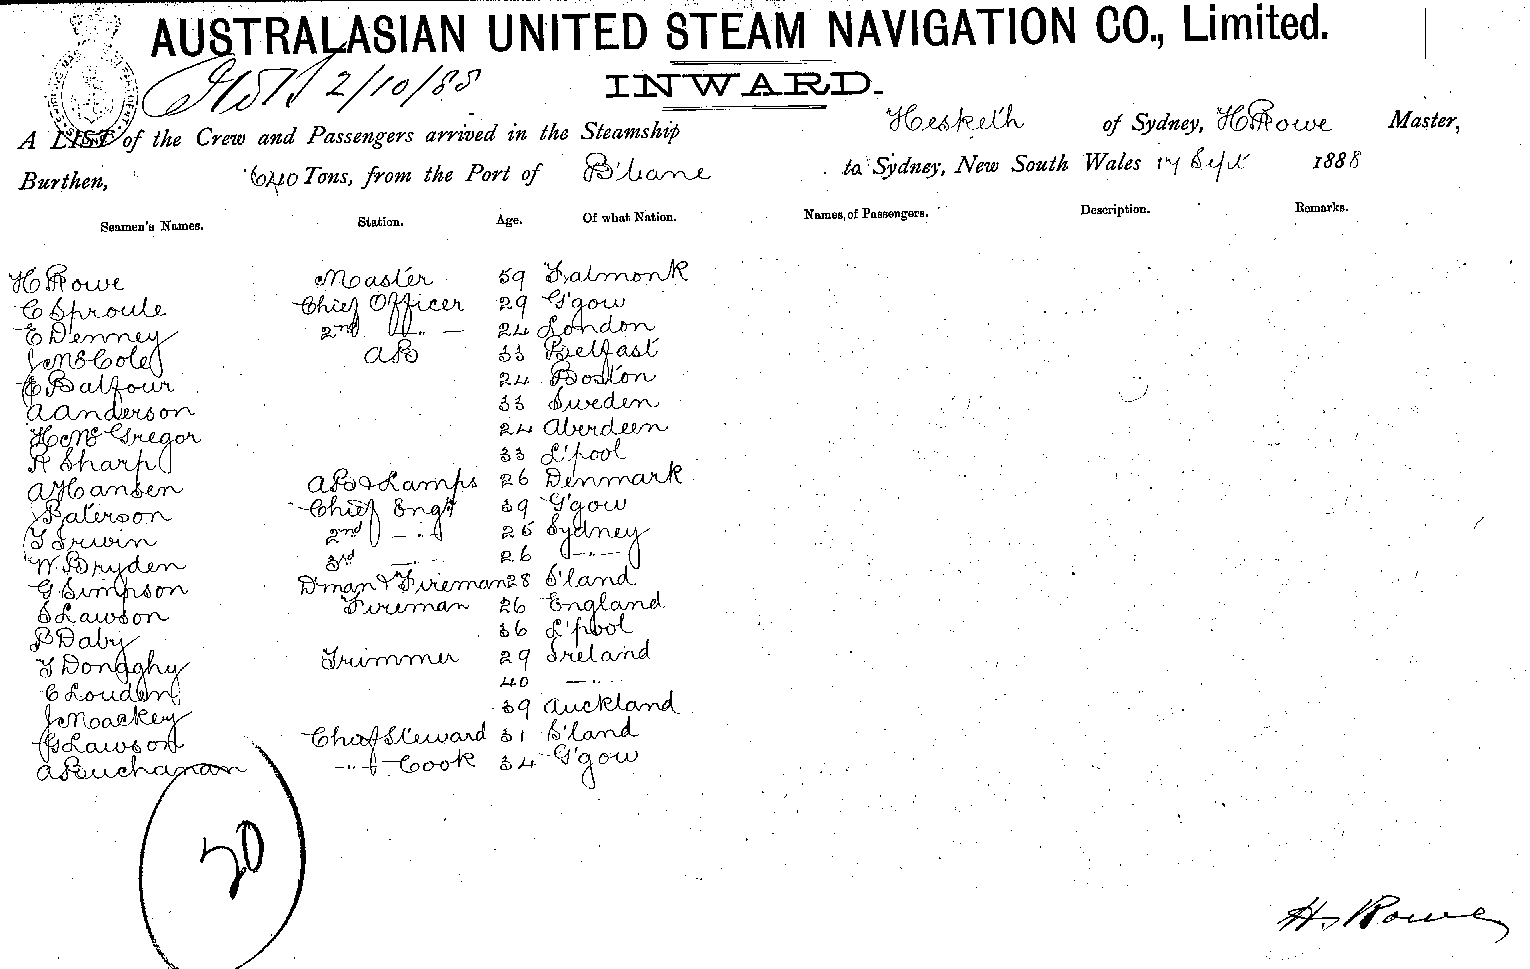 AUSTRALASIAN UNITED STEAM NAVIGATION CO., Limited.
2/10/88
INWARD.
A LIST of the Crew and Passengers arrived in the Steamship Hesketh of Sydney, H Rowe Master,
Burthen, 640 Tons, from the Port of B'bane to Sydney, New South Wales 17 Sept 1888
Seamen's Names. Station. Age. Of what Nation. Names, of Passengers. Description. Remarks.
H Rowe Master 59 Falmonk
C Sproule Chief Officer 29 G'gow
E Denney 2nd " — 24 London
J McCole AB 33 Belfast
C Balfour 24 Boston
A Anderson 33 Sweden
H McGregor 24 Aberdeen
R Sharp 33 L'pool
A Hansen AB & Lamps 26 Denmark
J Paterson Chief Engr 39 G'gow
T Irwin 2nd — " 26 Sydney
W Bryden 3rd — " 26 — " —
G Simpson Dman & Fireman 28 S'land
S Lawson Fireman 26 England
P Daby 36 L'pool
T Donaghy Trimmer 29 Ireland
C Louden 40 — "
J Mackey 39 Auckland
G Lawson Chief Steward 31 S'land
A Buchanan — " — Cook 34 G'gow
20
H Rowe